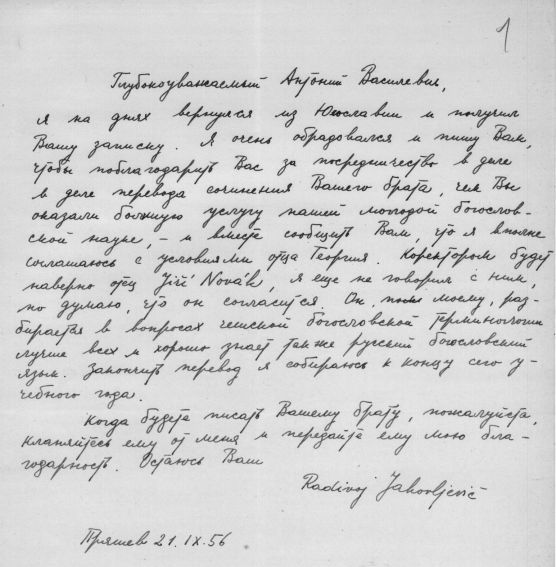 1
Глубокоуважаемый Антоний Василевич,
я на днях вернулся из Югославии и получил
Вашу записку. Я очень обрадовался и пишу Вам,
чтобы поблагодарить Вас за посредничество в деле
в деле перевода сочинения Вашего брата, чем Вы
оказали большую услугу нашей молодой богослов-
ской науке, – и вместе сообщить Вам, что я вполне
соглашаюсь с условиями отца Георгия. Коректором будет
наверно отец Jiří Novák, я еще не говорил с ним,
но думаю, что он согласится. Он, по моему, раз-
бирается в вопросах чешской богословской терминологии
лучше всех и хорошо знает также русский богословский
язык. Закончить перевод я собираюсь к концу сего у-
чебного года.
Когда будете писать Вашему брату, пожалуйста,
кланяйтесь ему от меня и передайте ему мою бла-
годарность. Остаюсь Ваш
Radivoj Jakovljevič
Пряшев 21.IX.56